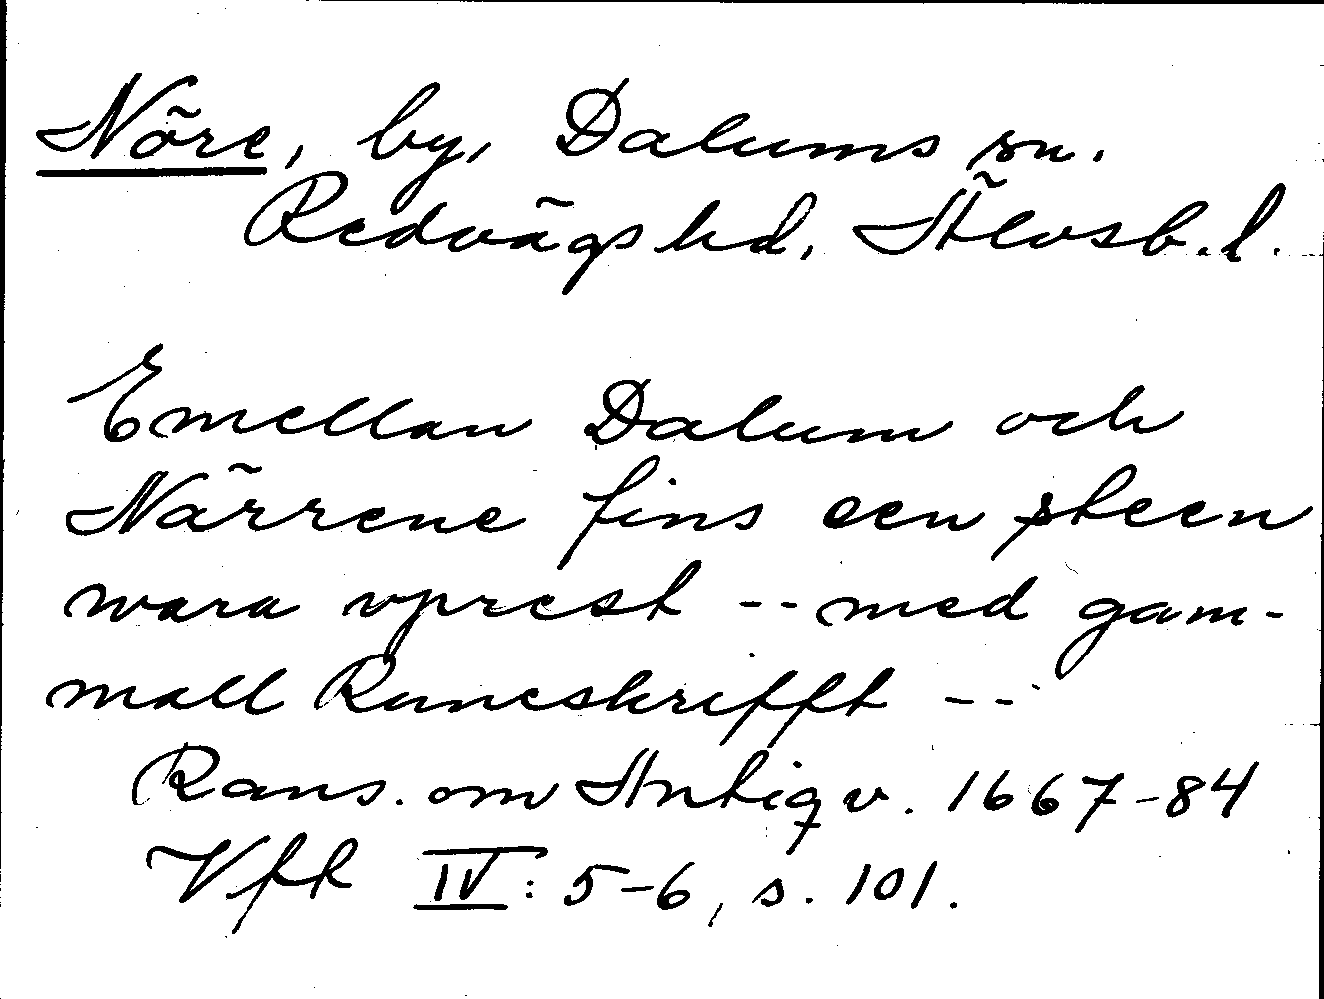 Nöre, by, Dalums sn.
Redvägs hd, Älvsb. l.
Emellan Dalum och
Närrene fins een steen
wara vprest -- med gam-
mall Runeskrifft --
Rans. om Antiqv. 1667-84
Vfk IV: 5-6, s. 101.